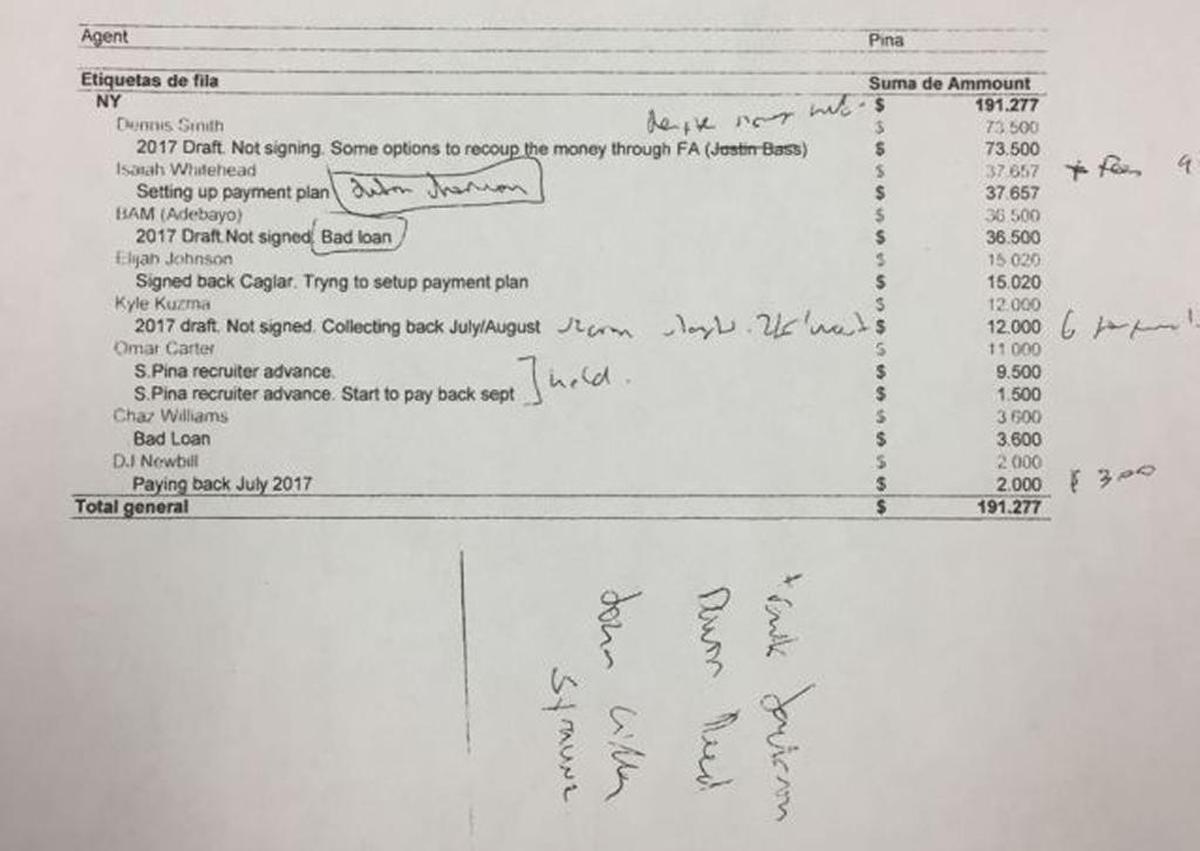 Agent Pina
Etiquetas de fila Suma de Ammount
NY $ 191.277
Dennis Smith $ 73.500
2017 Draft. Not signing. Some options to recoup the money through FA (Justin Bass) $ 73.500
Isaiah Whitehead $ 37.657 + fees
Setting up payment plan $ 37.657
BAM (Adebayo) $ 36.500
2017 Draft.Not signed. Bad loan $ 36.500
Elijah Johnson $ 15.020
Signed back Caglar. Tryng to setup payment plan $ 15.020
Kyle Kuzma $ 12.000
2017 draft. Not signed. Collecting back July/August $ 12.000 6
Omar Carter $ 11.000
S.Pina recruiter advance. $ 9.500
held.
S.Pina recruiter advance. Start to pay back sept $ 1.500
Chaz Williams $ 3.600
Bad Loan $ 3.600
DJ Newbill $ 2.000
Paying back July 2017 $ 2.000 $ 300
Total general $ 191.277
Reed
John